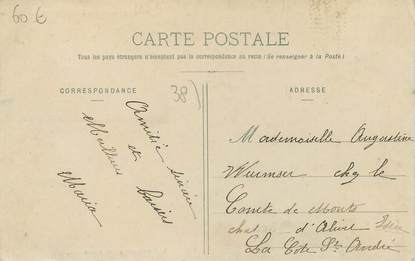 60 €
CARTE POSTALE
Tous les pays étrangers n'acceptent pas la correspondance au recto (Se renseigner à la Poste)
CORRESPONDANCE
ADRESSE
38)
Amitié sincère
et baisers
Meilleurs
Maria
Mademoiselle Augustine
Wurmser chez le
Comte de Monts
chat d'Alivet Isère
La Cote St André